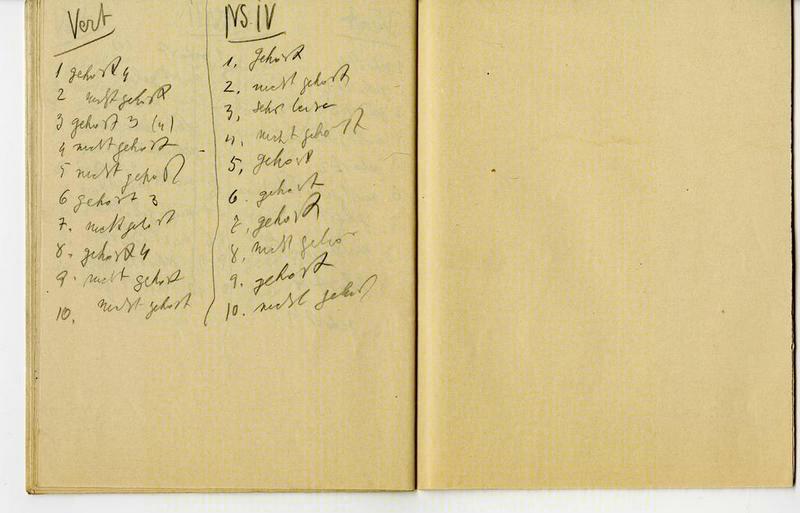 Vert
1 gehört 4
2 nicht gehört
3 gehört 3 (4)
4 nicht gehört
5 nicht gehört
6 gehört 3
7. nicht gehört
8. gehört 4
9. nicht gehört
10. nicht gehört
NS IV
1. gehört
2. nicht gehört
3. sehr leise
4. nicht gehört
5. gehört
6. gehört
7. gehört
8. nicht gehör
9. gehört
10. nicht gehört